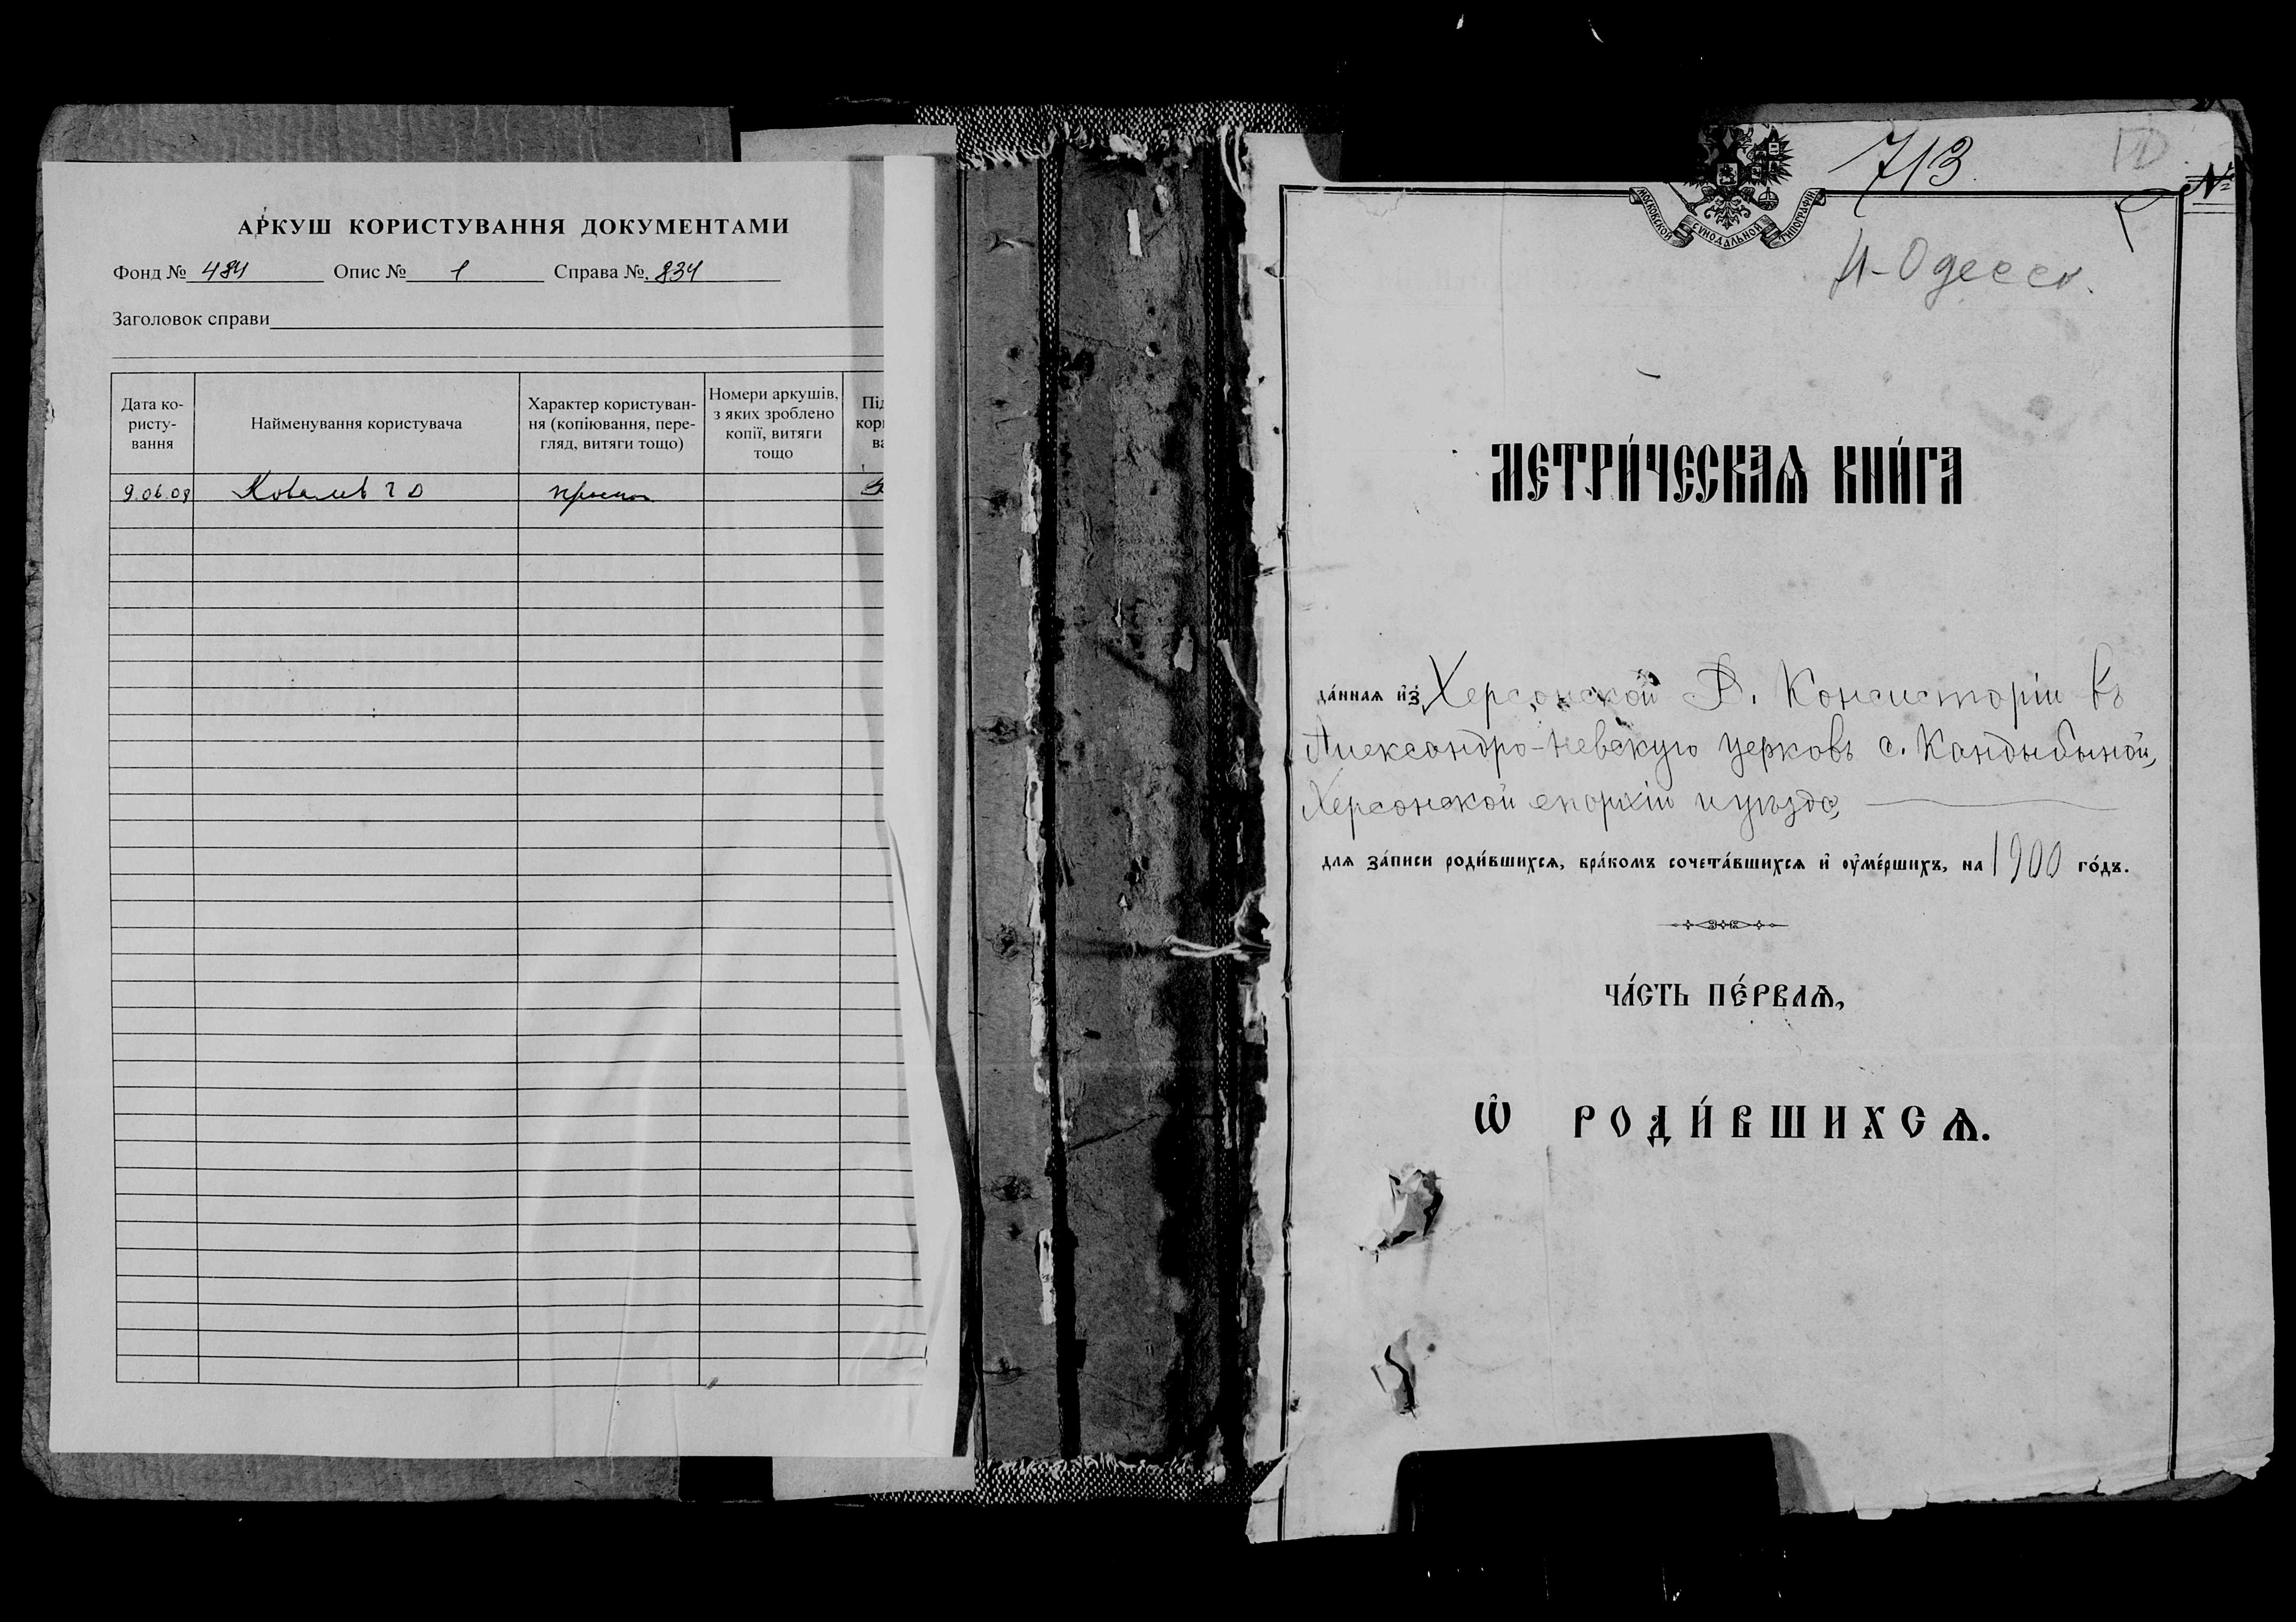 АРКУШ КОРИСТУВАННЯ ДОКУМЕНТАМИ
Фонд № 484 Опис № 1 Справа № 834
Заголовок справи
Дата ко-
ристу-
вання
Найменування користувача
Характер користуван-
ня (копіювання, пере-
гляд, витяги тощо)
Номери аркушів,
з яких зроблено
копії, витяги
тощо
Під
кор
ва
9.06.09
713
№
МОСКОВСКОЙ СѴНОДАЛЬНОЙ ТИПОГРАФІИ
Н-Одесск.
МЕТРИ́ЧЕСКАѦ КНИ́ГА
да́нная и҆з̾ Херсонской Д. Консисторіи въ
Александро-Невскую церковь с. Кандыбиной,
Херсонской епархіи и уѣзда,
для за́писи роди́вшихсѧ, бра́комъ сочета́вшихсѧ и҆ ᲂу҆ме́ршихъ, на 1900 го́дъ.
ЧА́СТЬ ПЕ́РВАѦ,
Ѡ҆ РОДИ́ВШИХСѦ.